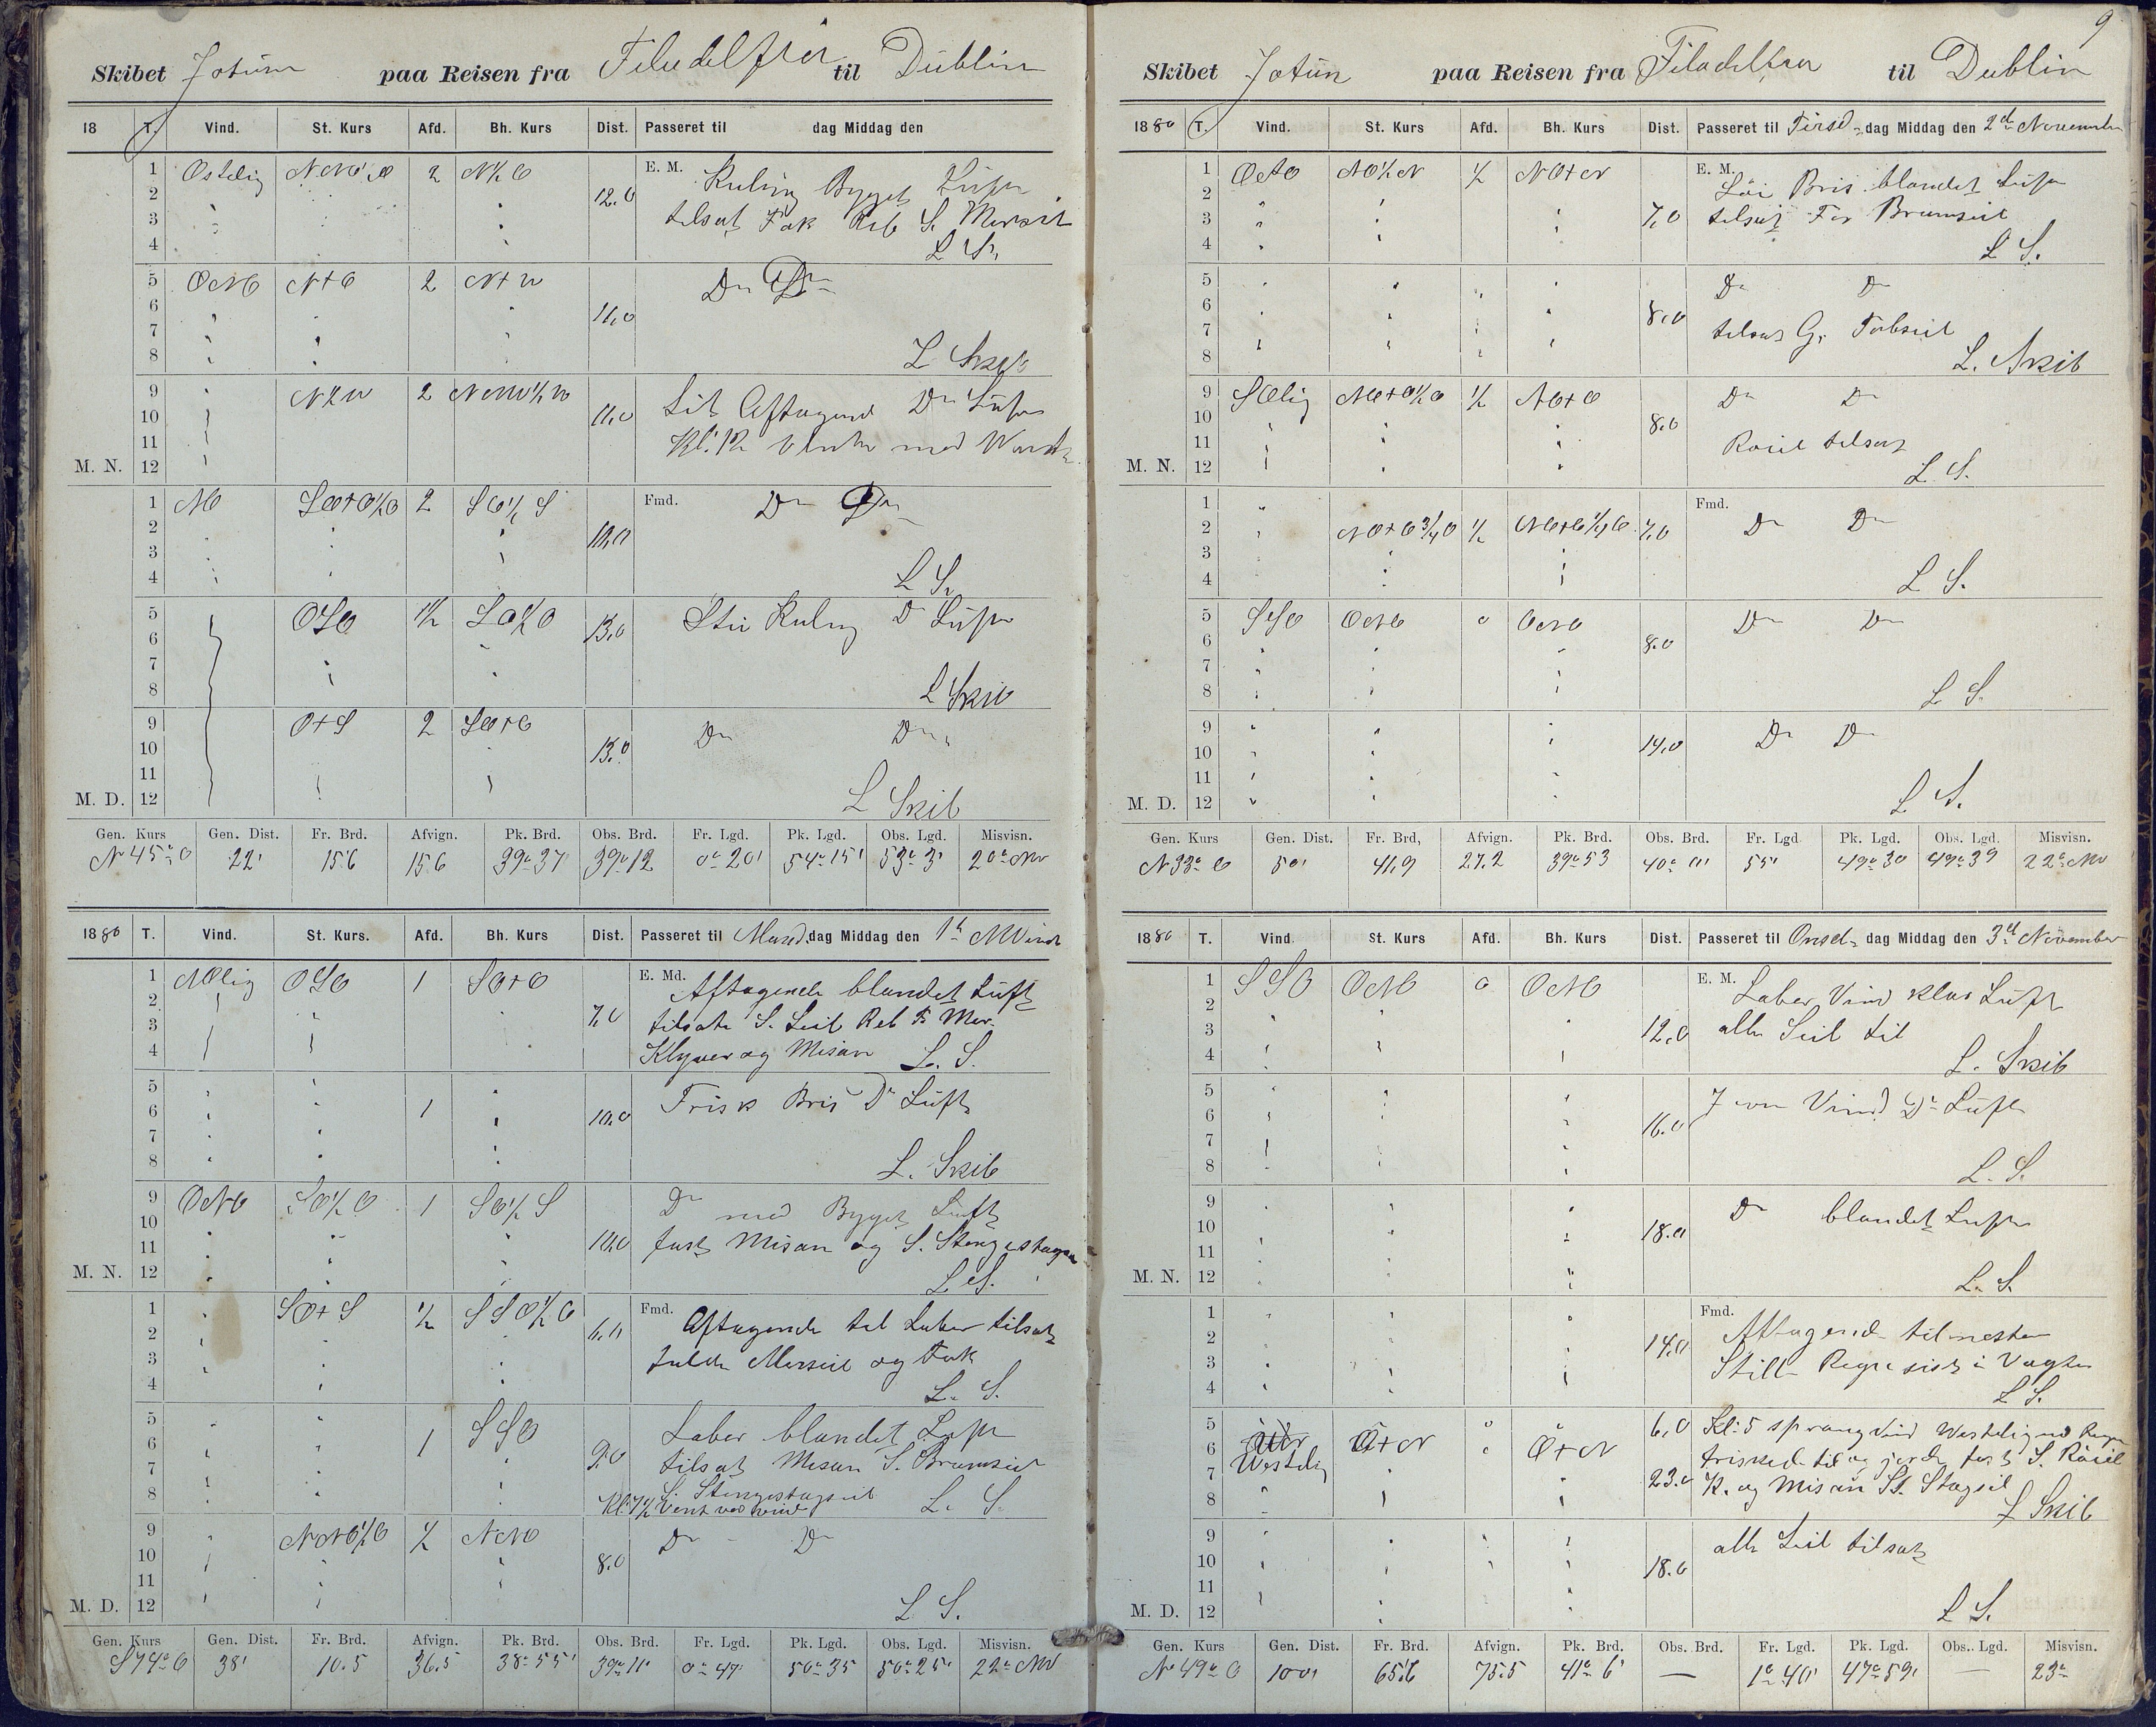 9
Skibet Jotun paa Reisen fra Filadelfia til Dublin
18 T. Vind. St. Kurs Afd. Bh. Kurs Dist. Passeret til dag Middag den
1 Østelig 2 N½O E. M. Kuling Bygget Luft
2 12.0
3 tilsat Fok Reb S. Mersseil
4 L S.
5 ONO N+O 2 N+W Do Do
6 11.0
7
8 L Skib
9 2 Lit Aftagend Do Luft
10 11.0
11 Kl. 12
M. N. 12
1 NO 2 SO½S Fmd. Do Do
2 10.0
3
4 L S.
5 OSO 1½ SO½O Stiv Kuling Do Luft
6 13.0
7
8 L Skib
9 O+S 2 SO+O Do Do
10 13.0
11
M. D. 12 L Skib
Gen. Kurs Gen. Dist. Fr. Brd. Afvign. Pk. Brd. Obs. Brd. Fr. Lgd. Pk. Lgd. Obs. Lgd. Misvisn.
N 45° O 22' 15.6 15.6 39° 37 39° 12 0° 20' 54° 15' 53° 3' 20° NW
1880 T. Vind. St. Kurs. Afd. Bh. Kurs Dist. Passeret til Mand dag Middag den 1t
1 NOlig OSO 1 SO+O E. Md. Aftagende blandet Luft
2 7.0
3 tilsatte S. Seil Reb F. Mer.
4 Klyver og Misan L. S.
5
6 1 10.0 Frisk Bris Do Luft
7
8 L. Skib
9 ONO SO½O 1 SO½S Do med Bygget Luft
10
11 10.0 fast Misan og S. Stengestagseil
M. N. 12 L S.
1 SO+S ½ SSO½O Fmd. Aftagende til Laber tilsat
2 6.0
3 fulde Merseil og Fok
4 L. S.
5 SSO Laber blandet Luft
6 1 9.0
7 tilsat Mesan S. Bramseil
8 S. Stengestagseil L. S.
Kl. 7½ Vent ved Vind
9 NNO½O ½ NNO Do Do
10 8.0
11
M. D. 12 L S.
Gen. Kurs Gen. Dist. Fr. Brd. Afvign. Pk. Brd. Obs. Brd. Fr. Lgd. Pk. Lgd. Obs. Lgd. Misvisn.
S 74° O 38' 10.5 36.5 38° 55' 39° 11' 0° 47' 50° 35 50° 25' 22° NW
Skibet Jotun paa Reisen fra Filadelfia til Dublin
1880 T. Vind. St. Kurs Afd. Bh. Kurs Dist. Passeret til Tirsd dag Middag den 2d November
1 OtO NO½N ½ NO+N E. M. Löi Bris blandet Luft
2
3 7.0 tilsat For Bramseil
4 L S.
5 Do Do
6 8.0
7 tilsat G. Topseil
8 L. Skib
9 SOlig NO+O½O ½ NO+O Do Do
10 8.0
11 Roiel tilsat
M. N. 12 L. S.
1 Fmd. Do Do
2 NO+O¾O ½ NO+O¼O 7.0
3
4 L S.
5 SSO ONO 0 ONO Do Do
6 8.0
7
8 L S.
9 Do Do
10 14.0
11
M. D. 12 L S.
Gen. Kurs Gen. Dist. Fr. Brd, Afvign. Pk. Brd. Obs. Brd. Fr. Lgd Pk. Lgd. Obs. Lgd. Misvisn.
N 33° O 50' 41.9 27.2 39° 53 40° 01' 55' 49° 30 49° 39 22° NW
1880 T. Vind. St. Kurs Afd. Bh. Kurs Dist. Passeret til Onsd dag Middag den 3d November
1 SSO ONO 0 ONO E. M. Laber Vind klar Luft
2
3 12.0 alle Seil til
4 L. Skib
5 Jevn Vind Do Luft
6 16.0
7
8 L. S.
9 Do blandet Luft
10 18.0
11
M. N. 12 L. S.
1 Fmd. Aftagend til nesten
2 14.0
3 Stille Regn sist i Vagten
4 L S.
5 6.0 Kl: 5 sprang Vind Westelig med Regn
6 O+N O+N
7 Westelig 23.0 friskede til og fast S. Röiel
8 K. og Misan St. Stagseil L Skib
9 alle Seil tilsat
10 18.0
11
M. D. 12 L S.
Gen. Kurs Gen. Dist. Fr. Brd. Afvign. Pk. Brd. Obs. Brd. Fr. Lgd. Pk. Lgd. Obs. Lgd. Misvisn.
N 49° O 100' 65.6 75.5 41° 6' — 1° 40' 47° 59' — 23°